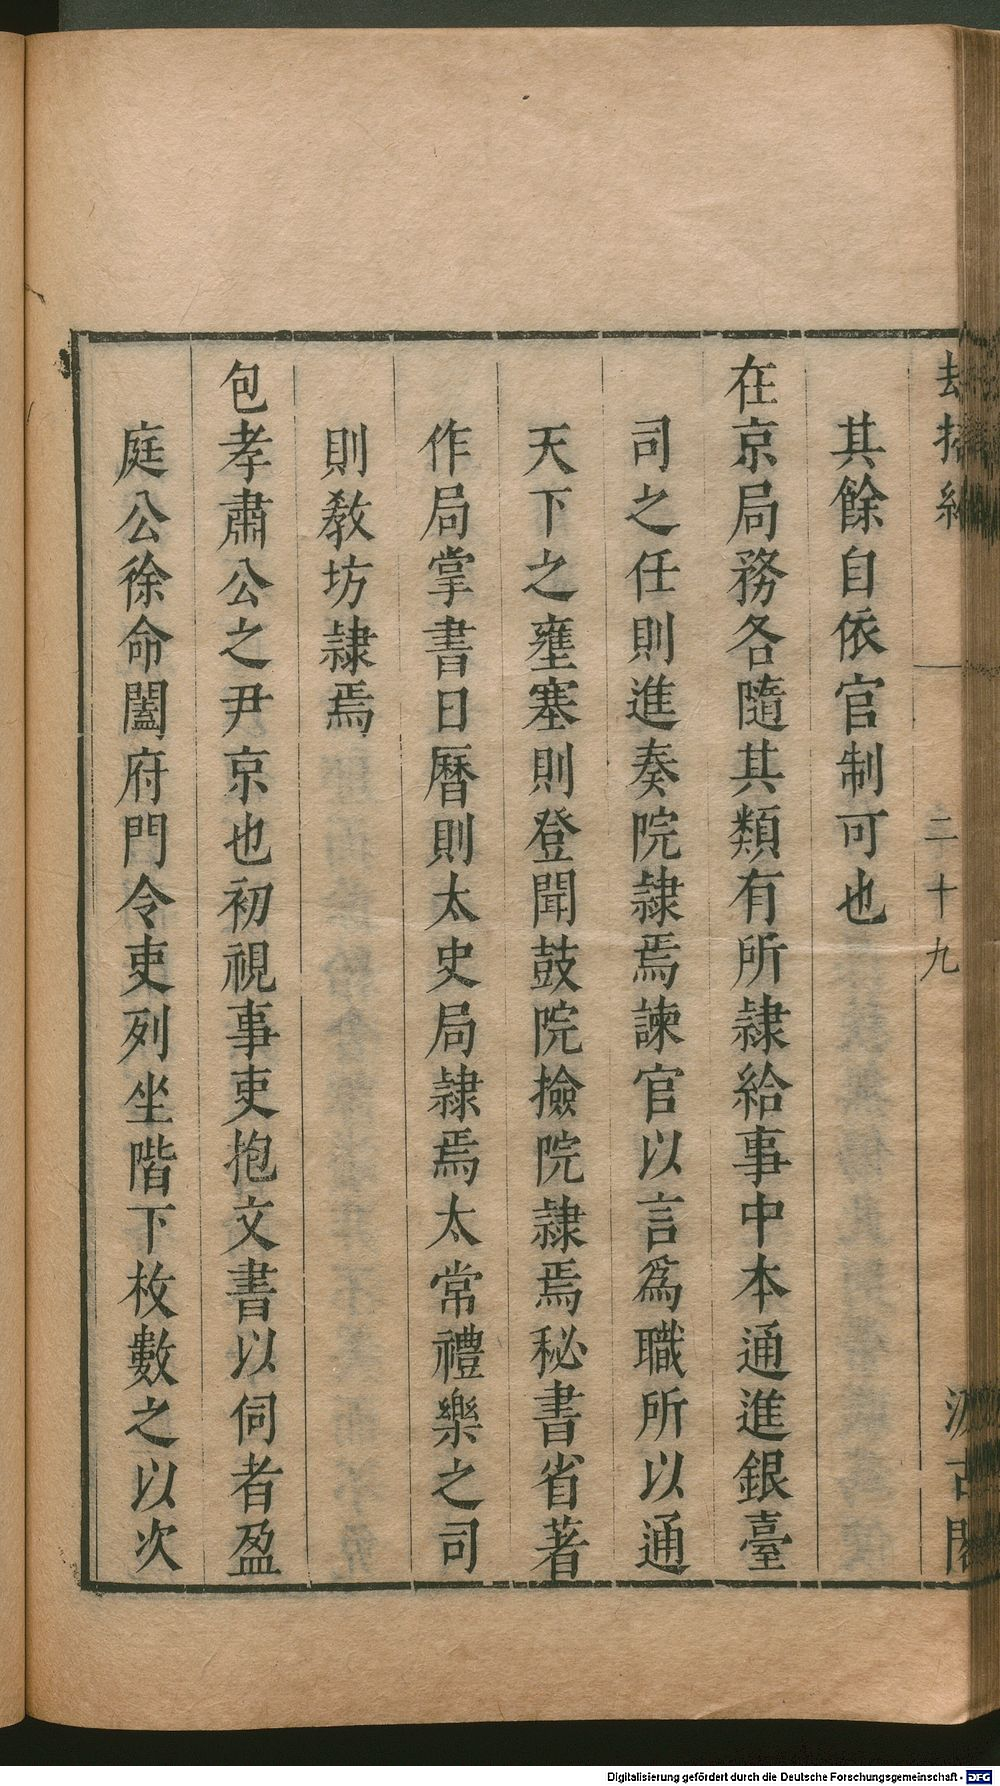 二十九
古閣
其餘自依官制可也
在京局務各隨其類有所隷給事中本通進銀臺
司之任則進奏院隷焉諫官以言爲職所以通
天下之壅塞則登聞鼓院撿院隷焉秘書省著
作局掌書日曆則太史局隷焉太常禮樂之司
則敎坊隷焉
包孝肅公之尹京也初視事吏抱文書以伺者盈
庭公徐命闔府門令吏列坐階下枚數之以次
Digitalisierung gefördert durch die Deutsche Forschungsgemeinschaft - DFG